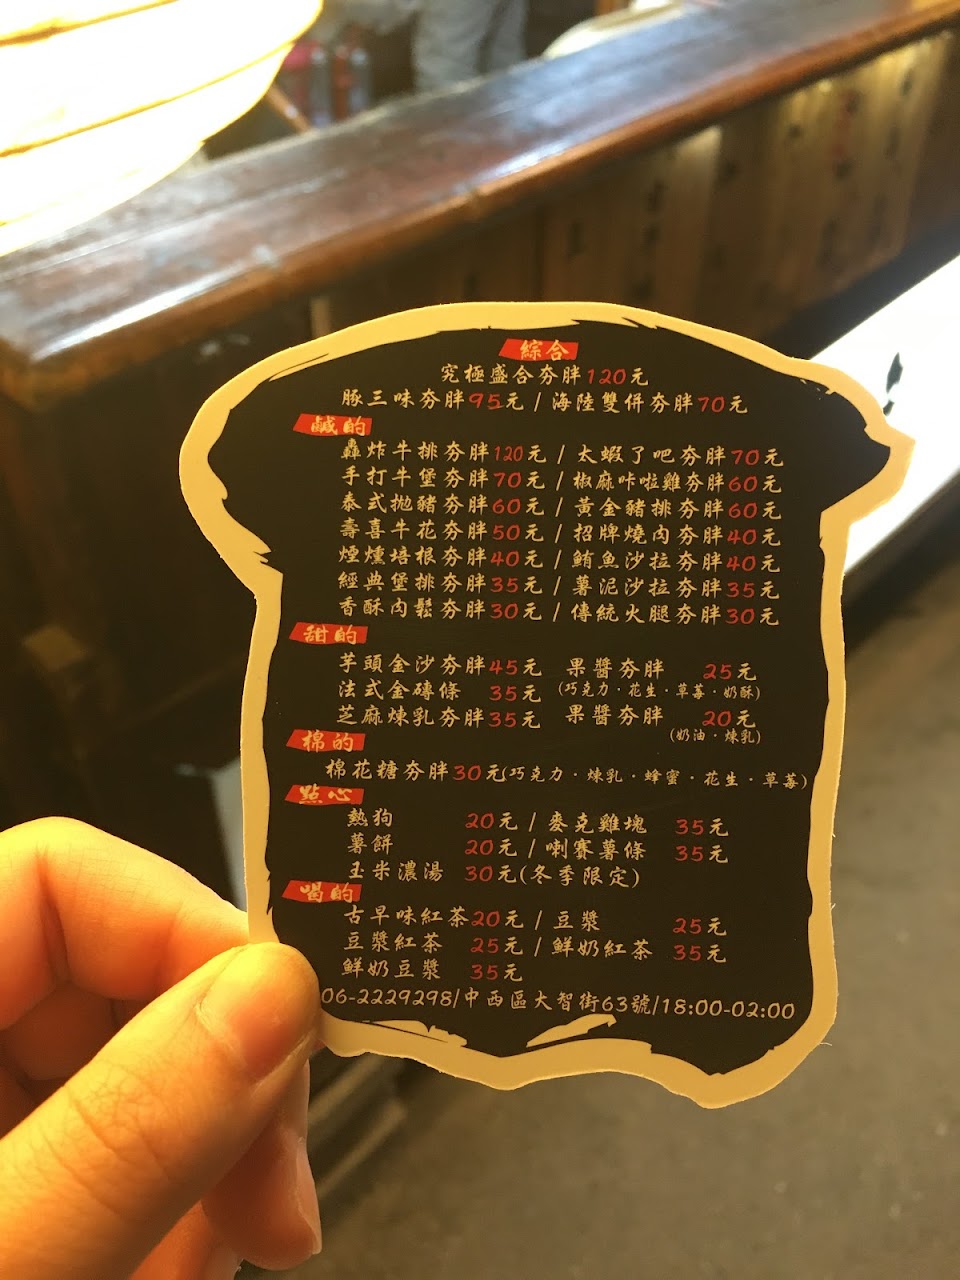 綜合
究極盛合夯胖120元
豚三味夯胖95元 / 海陸雙併夯胖70元
鹹的
轟炸牛排夯胖120元 / 太蝦了吧夯胖70元
手打牛堡夯胖70元 / 椒麻咔啦雞夯胖60元
泰式拋豬夯胖60元 / 黃金豬排夯胖60元
壽喜牛花夯胖50元 / 招牌燒肉夯胖40元
煙燻培根夯胖40元 / 鮪魚沙拉夯胖40元
經典堡排夯胖35元 / 薯泥沙拉夯胖35元
香酥肉鬆夯胖30元 / 傳統火腿夯胖30元
甜的
芋頭金沙夯胖45元 果醬夯胖 25元
法式金磚條 35元 (巧克力．花生．草莓．奶酥)
芝麻煉乳夯胖35元 果醬夯胖 20元
(奶油．煉乳)
棉的
棉花糖夯胖30元(巧克力．煉乳．蜂蜜．花生．草莓)
點心
熱狗 20元 / 麥克雞塊 35元
薯餅 20元 / 喇賽薯條 35元
玉米濃湯 30元(冬季限定)
喝的
古早味紅茶20元 / 豆漿 25元
豆漿紅茶 25元 / 鮮奶紅茶 35元
鮮奶豆漿 35元
06-2229298/中西區大智街63號/18:00-02:00